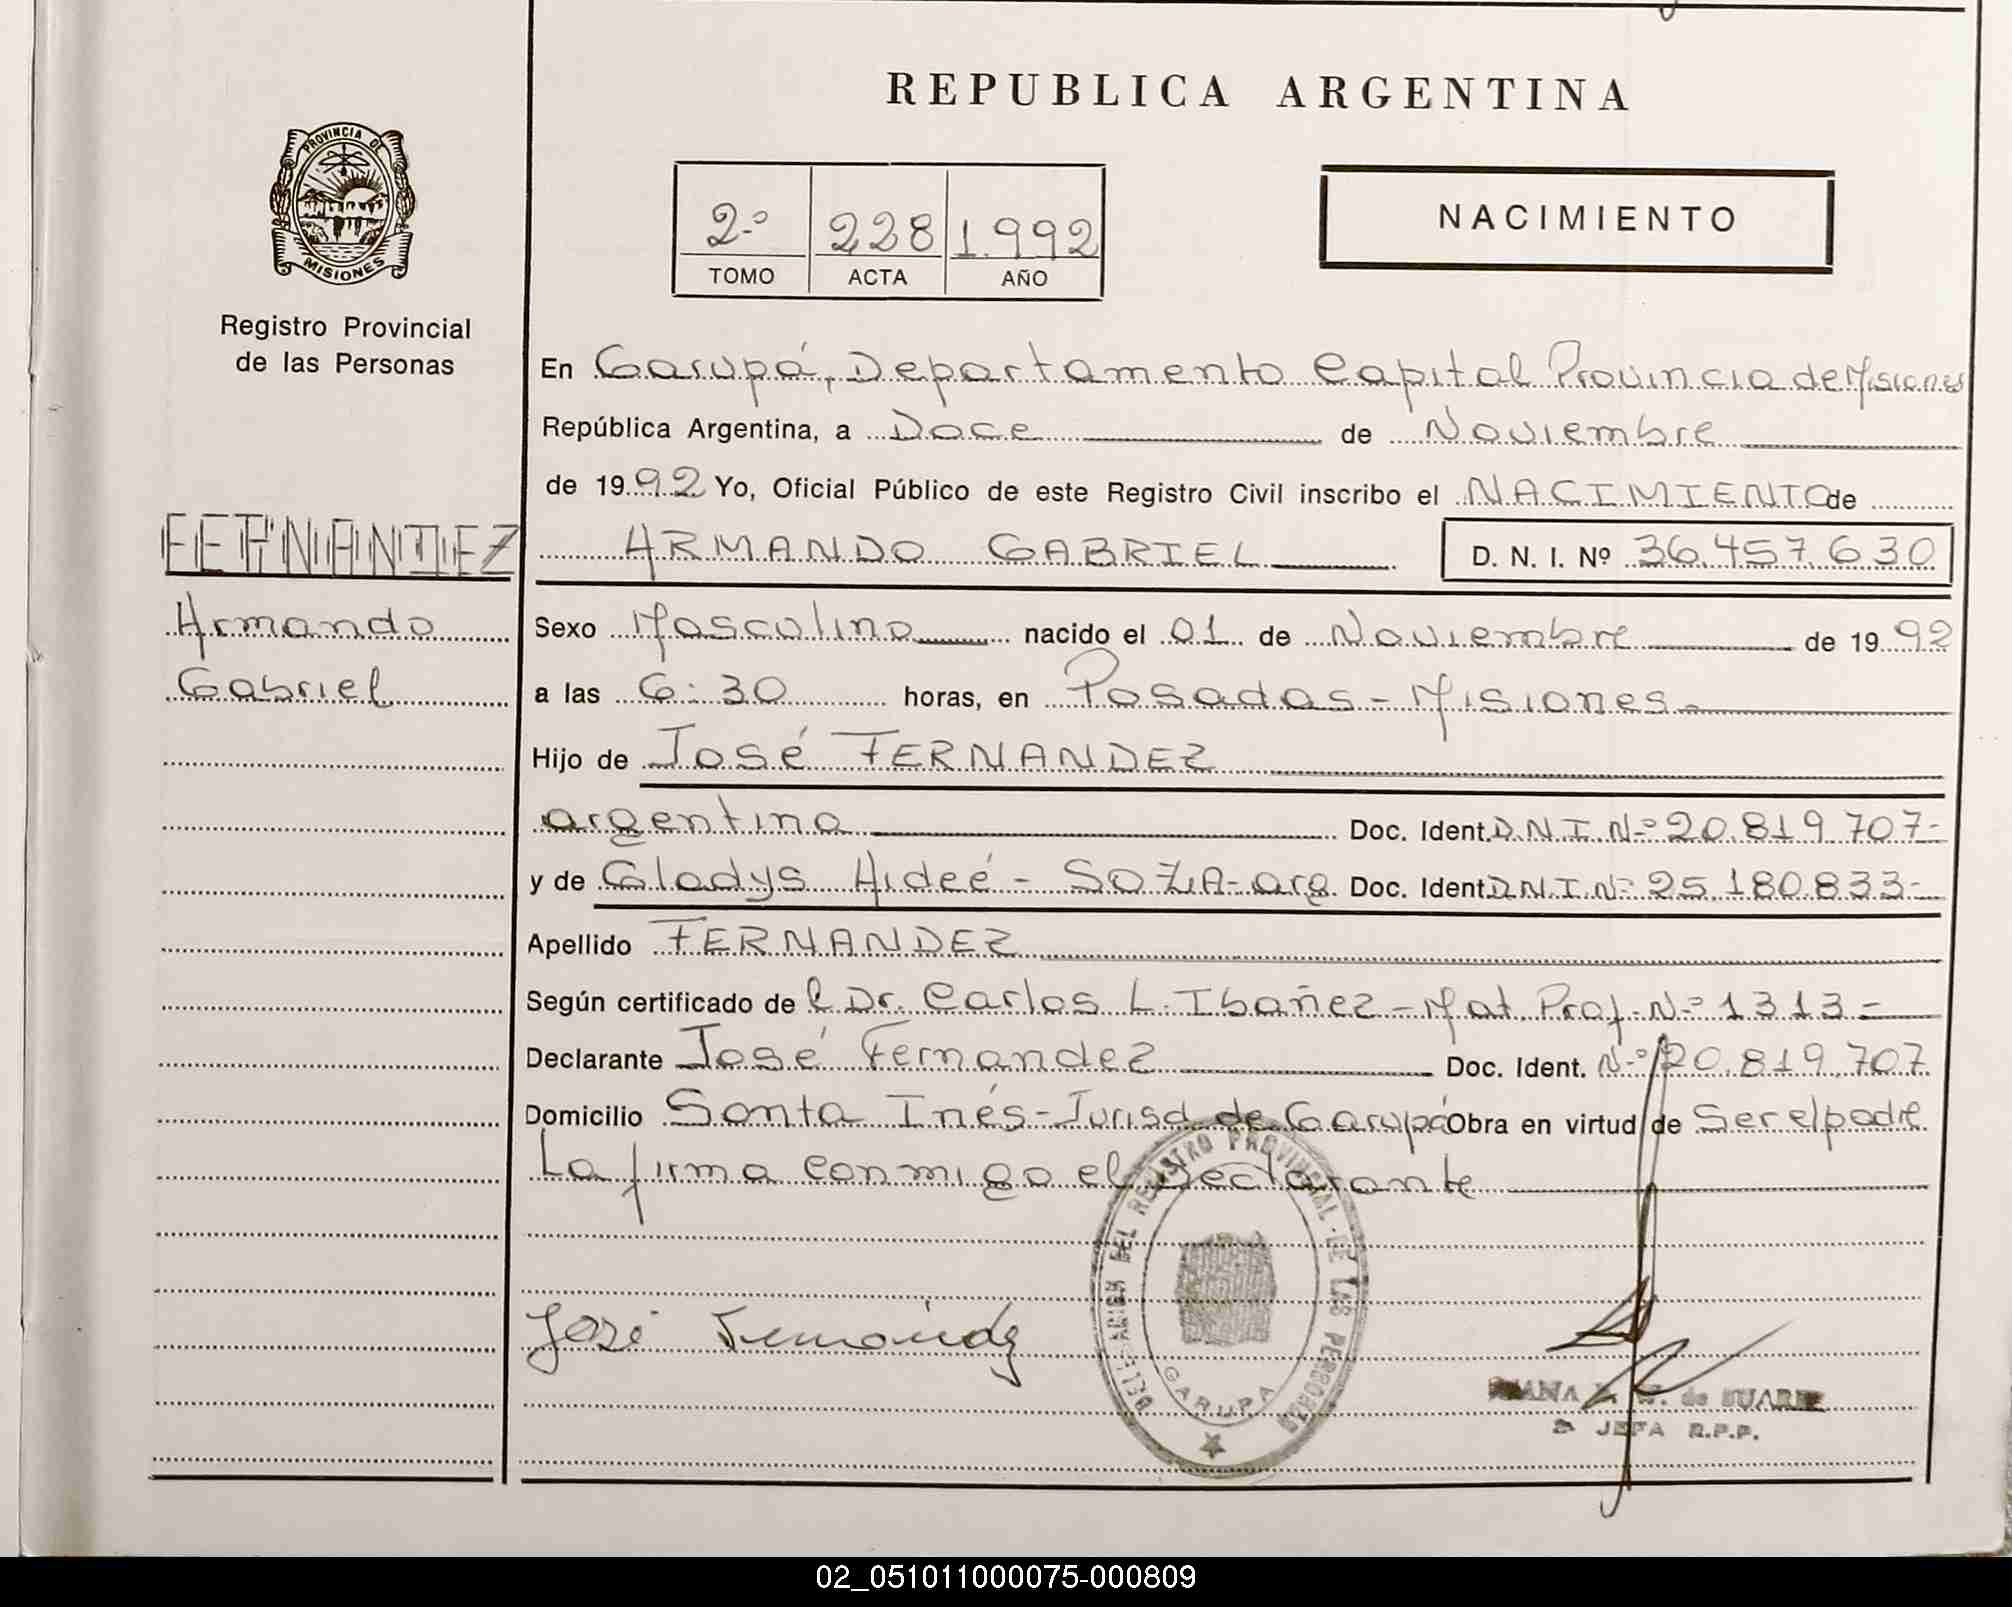 REPUBLICA ARGENTINA
PROVINCIA DE MISIONES
Registro Provincial
de las Personas
2º 228 1.992
TOMO ACTA AÑO
NACIMIENTO
En Garupá, Departamento Capital Provincia de Misiones
República Argentina, a Doce de Noviembre
de 1992 Yo, Oficial Público de este Registro Civil inscribo el NACIMIENTO de
FERNANDEZ
ARMANDO GABRIEL D. N. I. Nº 36.457.630
Armando
Gabriel
Sexo Masculino nacido el 01 de Noviembre de 1992
a las 6:30 horas, en Posadas - Misiones
Hijo de José FERNANDEZ
argentino Doc. Ident. D.N.I. Nº 20.819.707-
y de Gladys Hideé - SOZA - arg. Doc. Ident. D.N.I. Nº 25.180.833-
Apellido FERNANDEZ
Según certificado de Dr. Carlos L. Ibañez - Mat. Prof. Nº 1313 -
Declarante José Fernandez Doc. Ident. Nº 20.819.707
Domicilio Santa Inés - Jurisd. de Garupá Obra en virtud de Ser el padre
La firma conmigo el declarante
DELEGACION DEL REGISTRO PROVINCIAL DE LAS PERSONAS
GARUPA
José Fernández
de SUAREZ
JEFA R.P.P.
02_051011000075-000809